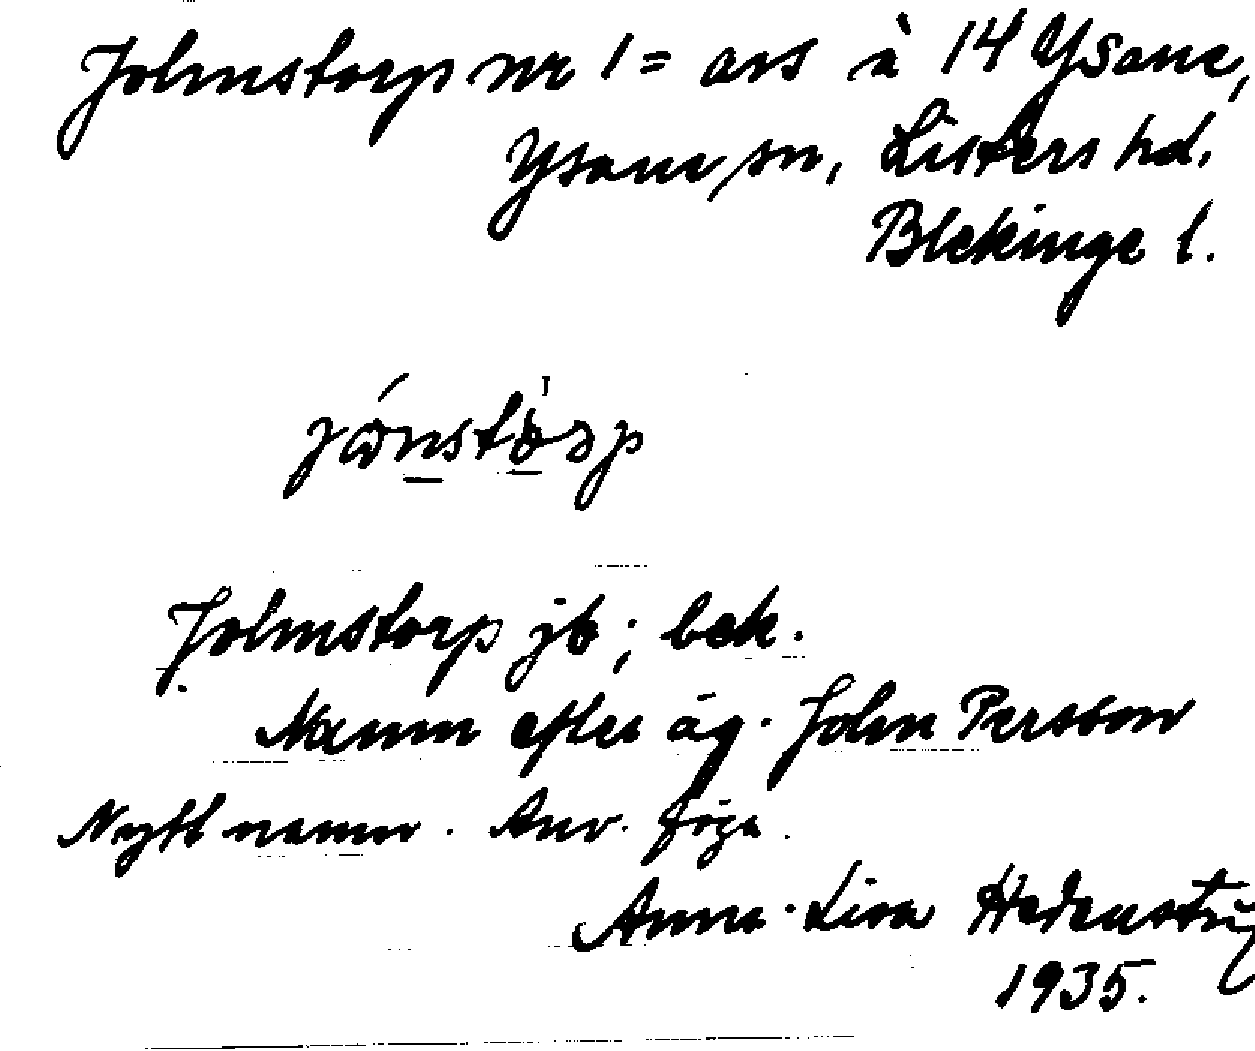 Johnstorp nr 1 = avs à 14 Ysane,
Ysane sn, Listers hd.
Blekinge l.
Johnstorp jb; bek.
Namn efter äg. John Persson
Nytt namn. Anv. föga.
Anna-Lisa Hedenstr
1935.